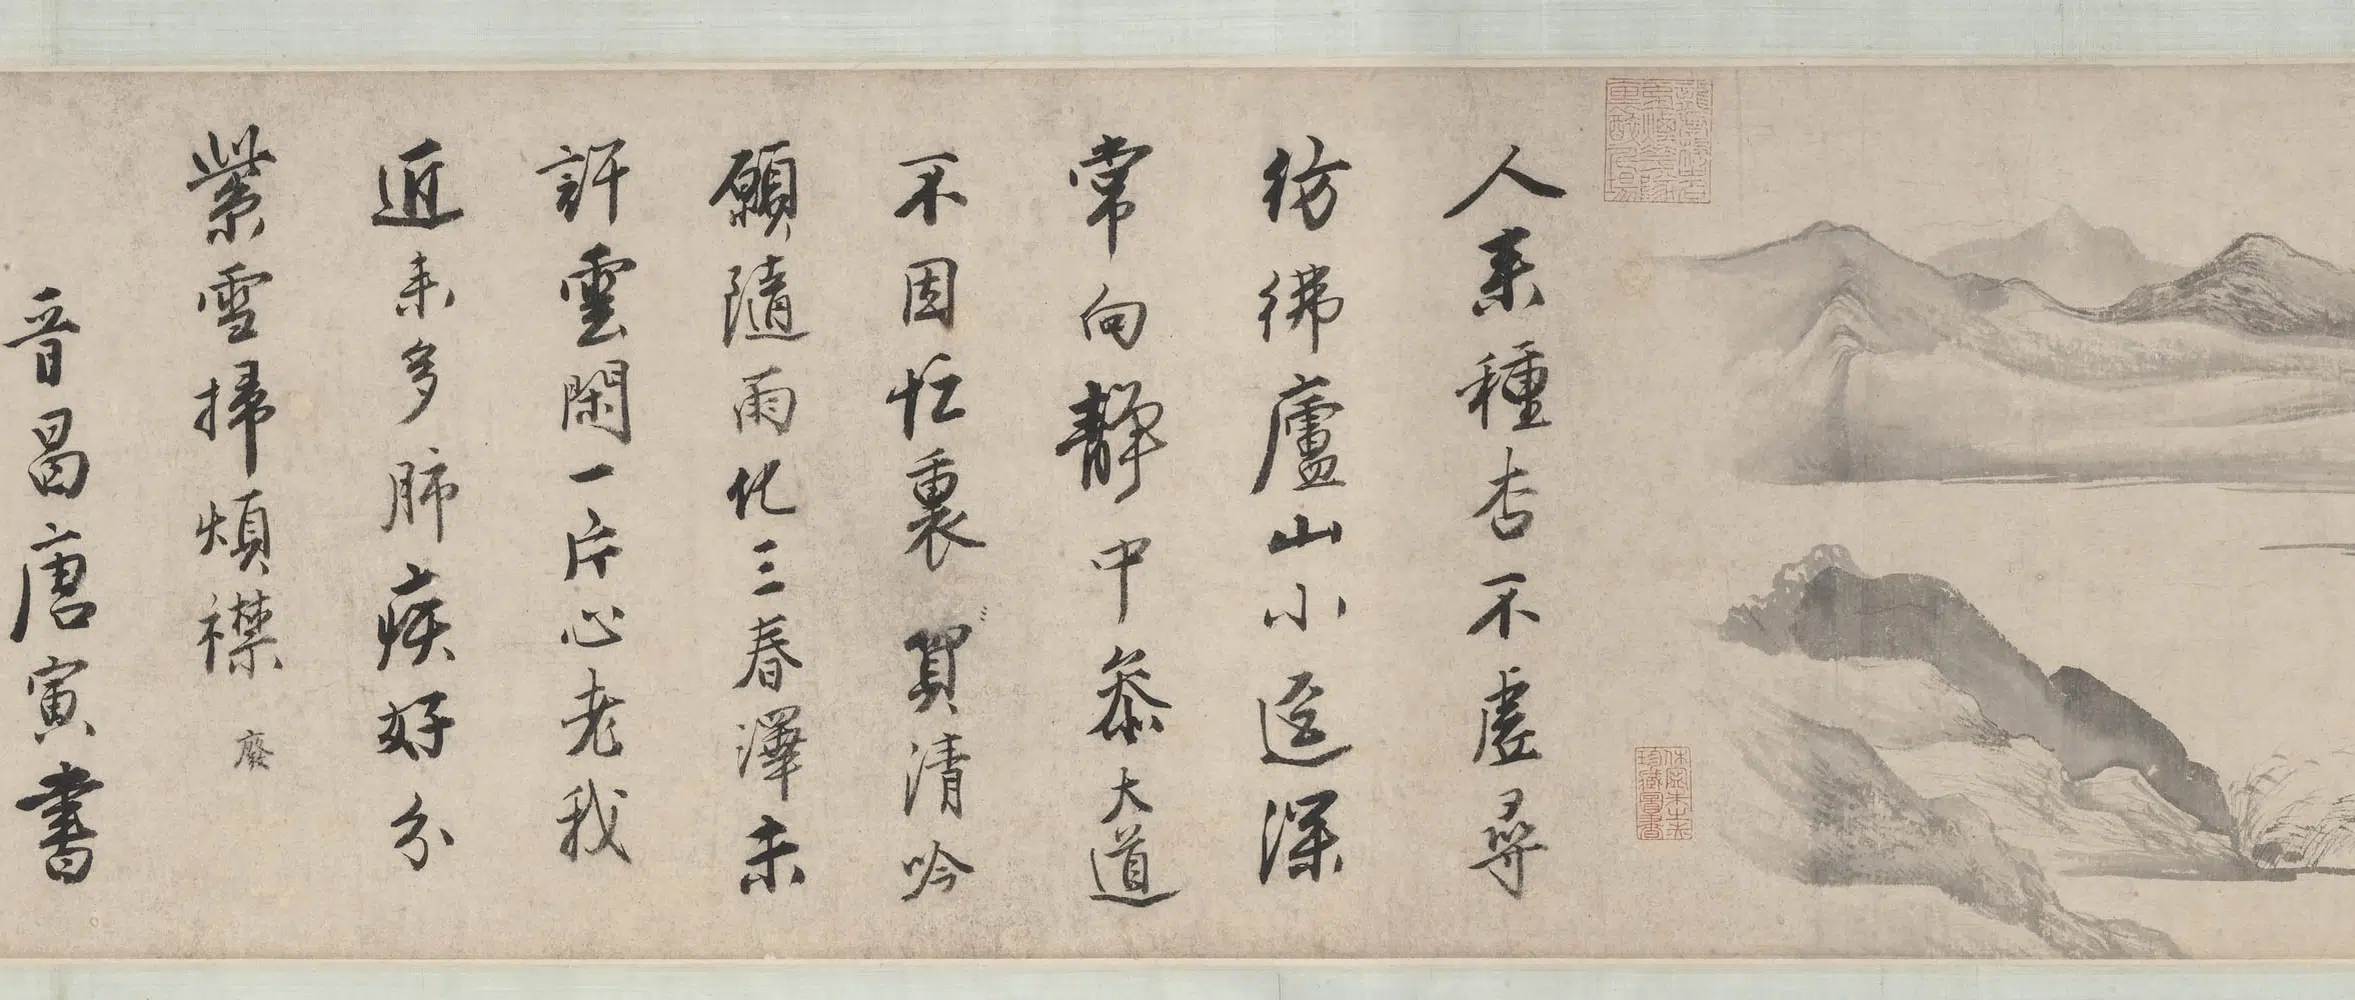 人來種杏不虛尋
彷彿廬山小逕深
常向靜中參大道
不因忙裏清吟
願隨雨化三春澤未
許雲閑一片心老我
近來多肺疾好分
紫雪掃煩襟 廢
晉昌唐寅書
休寧朱之赤
珍藏圖書